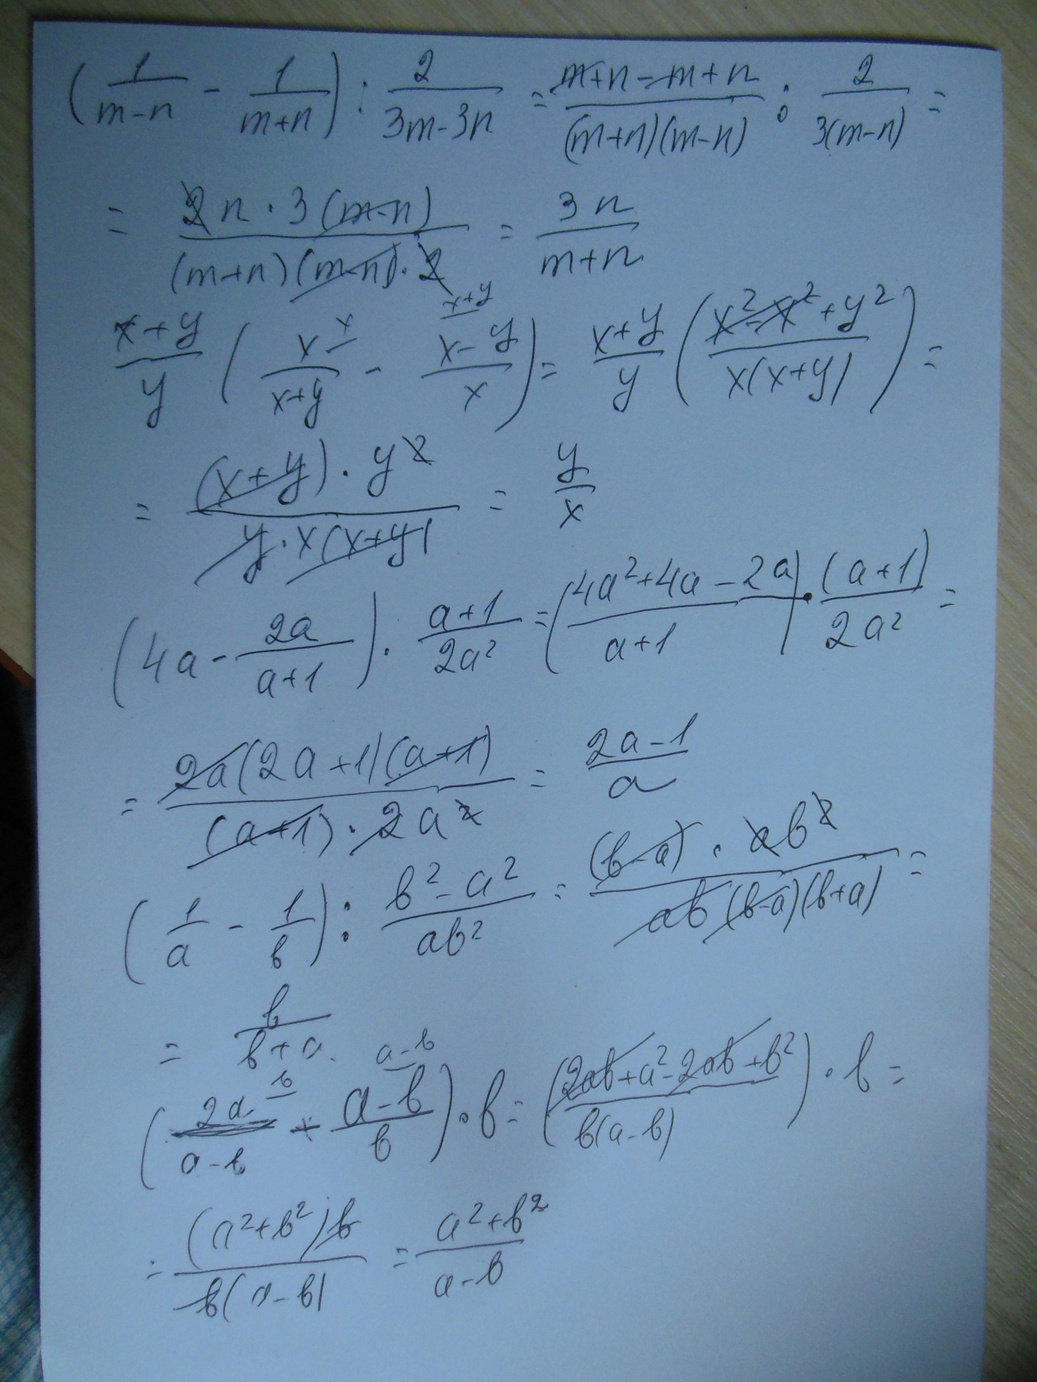 (1/(m-n) - 1/(m+n)) : 2/(3m-3n) = (m+n-m+n)/((m+n)(m-n)) : 2/(3(m-n)) =
= (2n·3(m-n))/((m+n)(m-n)·2) = 3n/(m+n)
(x+y)/y (x/(x+y) - (x-y)/x) = (x+y)/y ((x²-x²+y²)/(x(x+y))) =
= ((x+y)·y²)/(y·x(x+y)) = y/x
(4a - 2a/(a+1)) · (a+1)/(2a²) = ((4a²+4a-2a)/(a+1)) · (a+1)/(2a²) =
= (2a(2a+1)(a+1))/((a+1)·2a²) = (2a-1)/a
(1/a - 1/b) : (b²-a²)/(ab²) = ((b-a)·ab²)/(ab(b-a)(b+a)) =
= b/(b+a)
(2a/(a-b) + (a-b)/b) · b = ((2ab+a²-2ab+b²)/(b(a-b))) · b =
= ((a²+b²)b)/(b(a-b)) = (a²+b²)/(a-b)